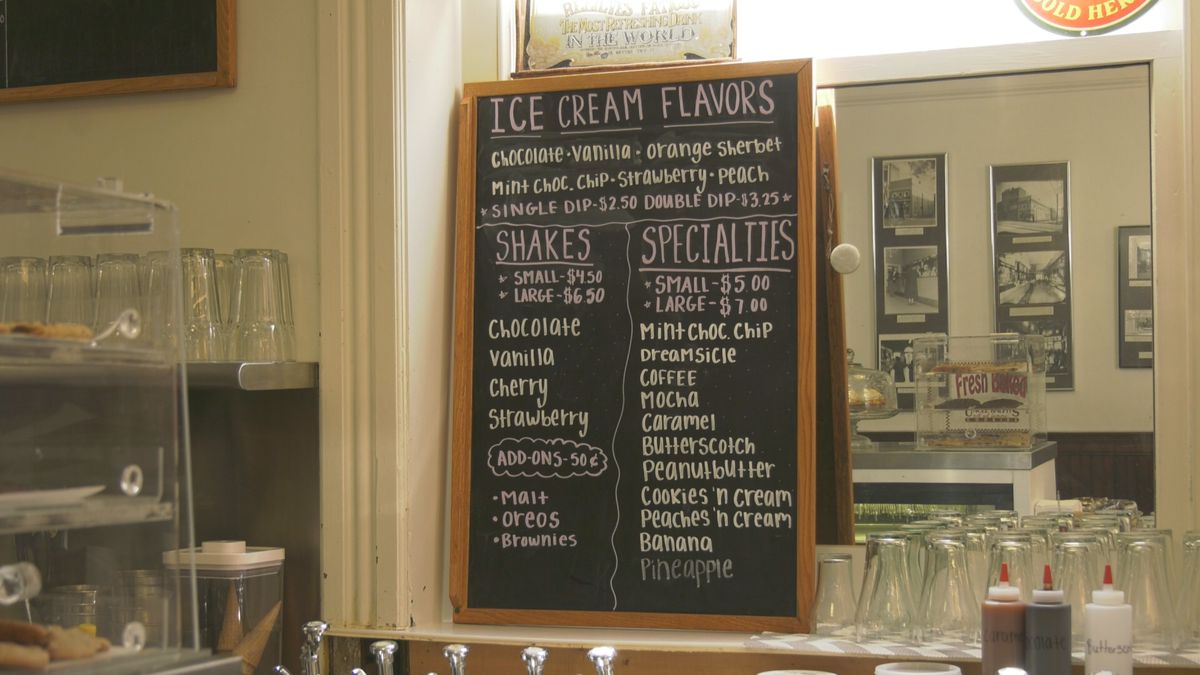 THE MOST REFRESHING DRINK
IN THE WORLD.
COLD HERE
ICE CREAM FLAVORS
Chocolate • Vanilla • Orange Sherbet
Mint Choc. Chip • Strawberry • Peach
* SINGLE DIP - $2.50 DOUBLE DIP - $3.25 *
SHAKES
* SMALL - $4.50
* LARGE - $6.50
Chocolate
Vanilla
Cherry
Strawberry
ADD-ONS - 50¢
• Malt
• Oreos
• Brownies
SPECIALTIES
* SMALL - $5.00
* LARGE - $7.00
Mint Choc. Chip
Dreamsicle
COFFEE
Mocha
Caramel
Butterscotch
Peanutbutter
Cookies 'n Cream
Peaches 'n Cream
Banana
Pineapple
Fresh Baked
COOKIES